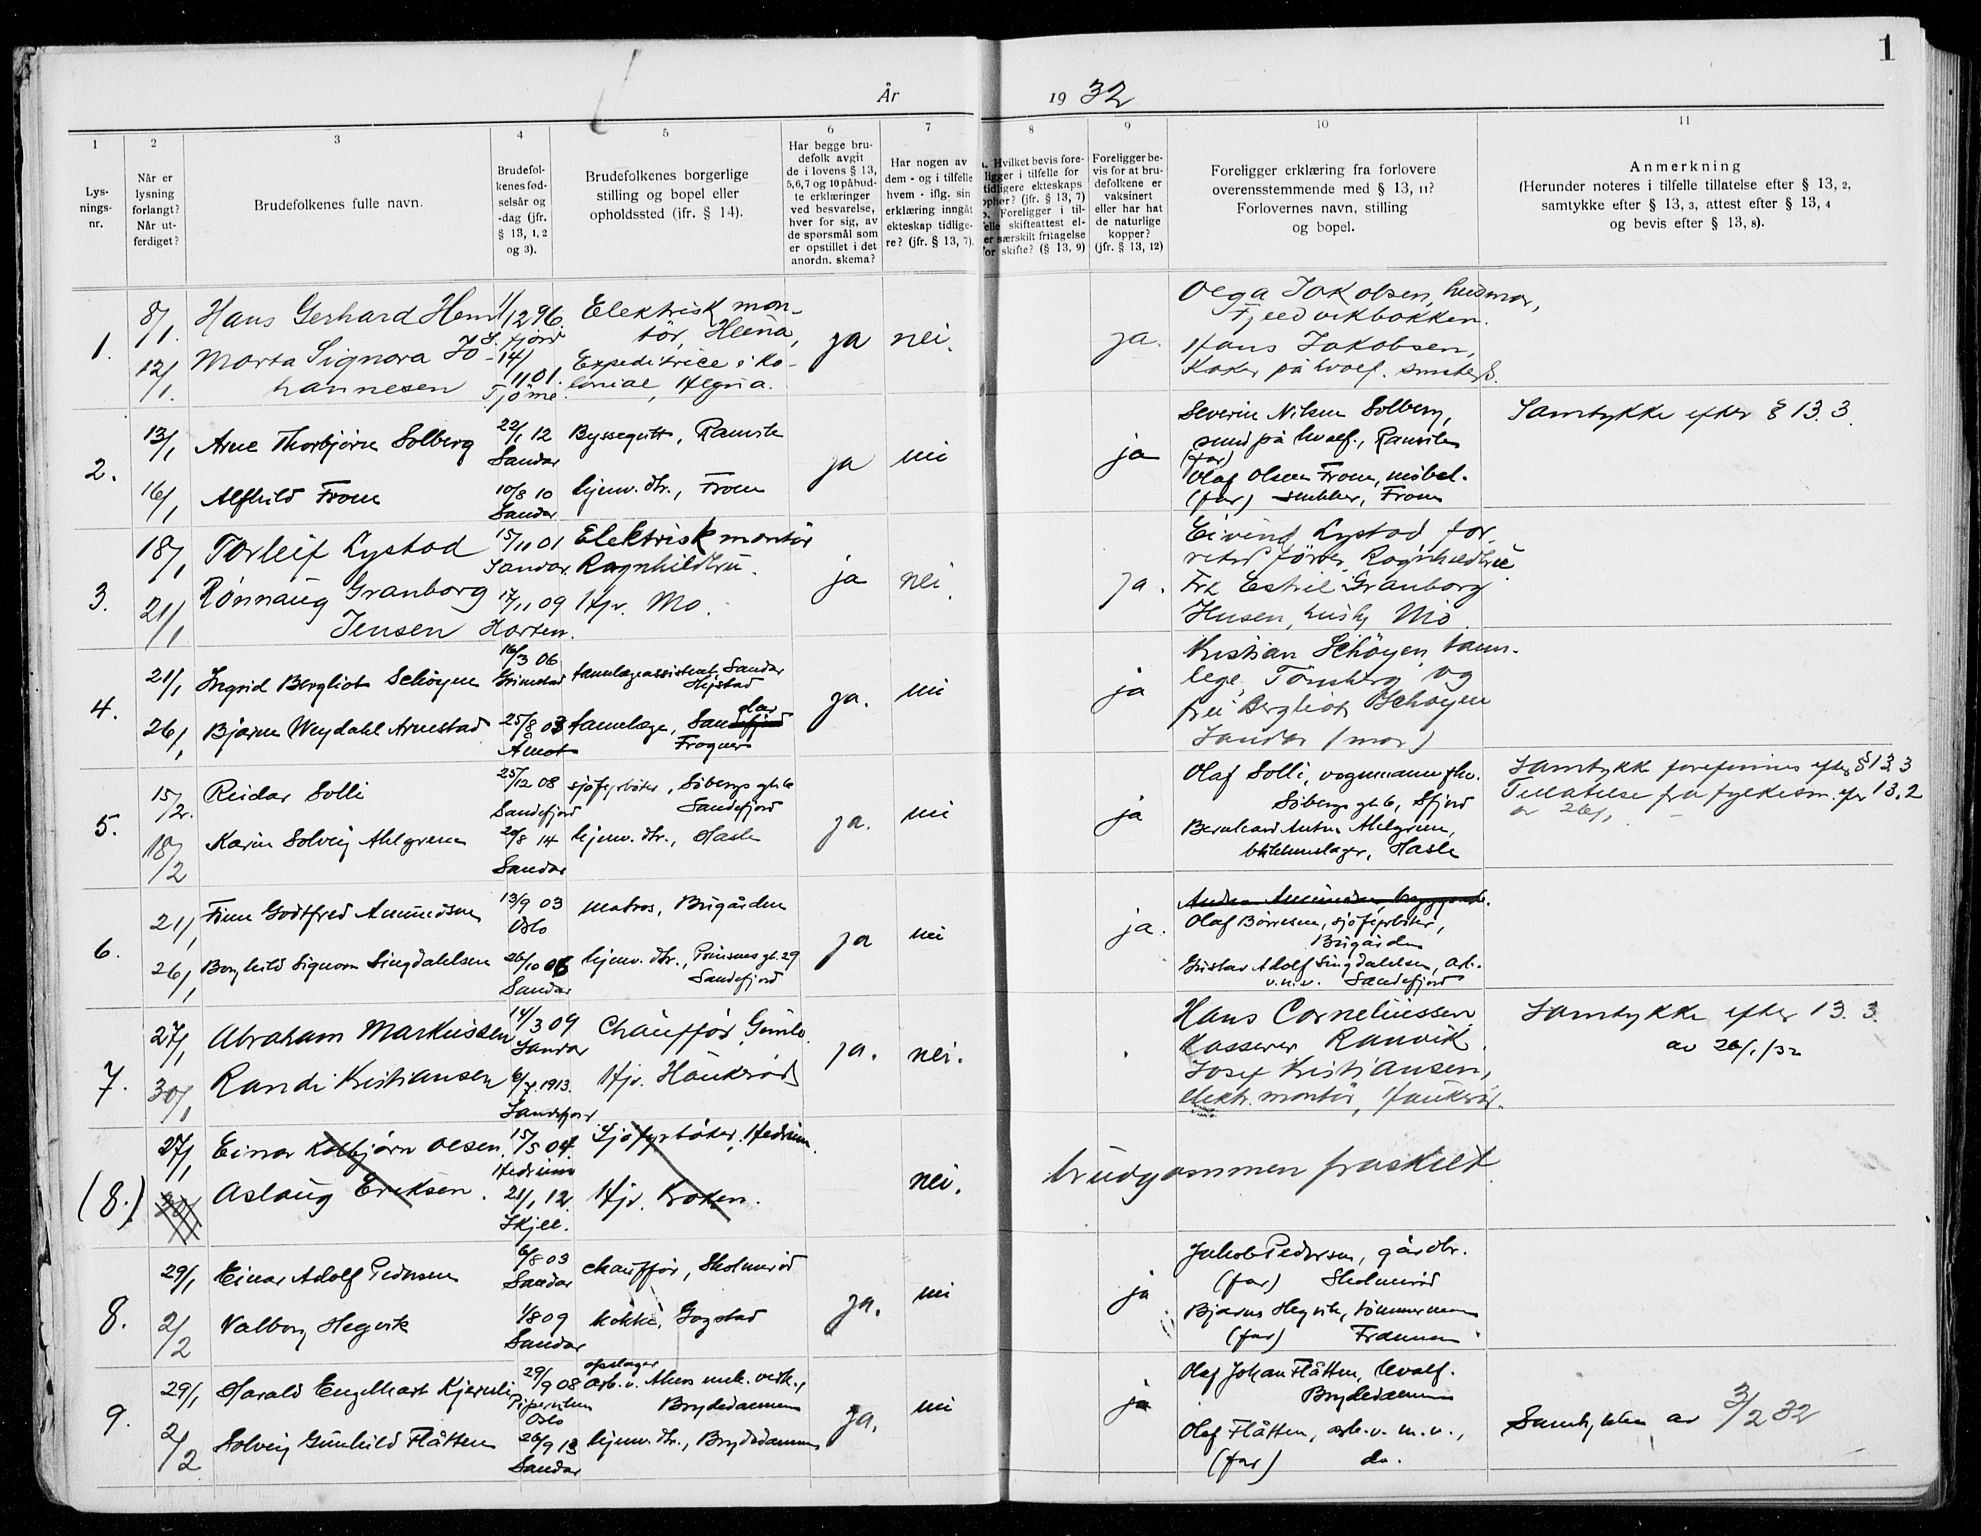 1
År 1932
1
Lys-
nings-
nr.
2
Når er
lysning
forlangt?
Når ut-
ferdiget?
3
Brudefolkenes fulle navn.
4
Brudefol-
kenes fød-
selsår og
-dag (jfr.
§ 13, 1, 2
og 3).
5
Brudefolkenes borgerlige
stilling og bopel eller
opholdssted (jfr. § 14).
6
Har begge bru-
defolk avgit
de i lovens § 13,
5,6,7 og 10 påbud-
te erklæringer
ved besvarelse,
hver for sig, av
de spørsmål som
er opstillet i det
anordn. skema?
7
Har nogen av
dem - og i tilfelle
hvem - iflg. sin
erklæring inngåt
ekteskap tidlige-
re? (jfr. § 13, 7).
8
Hvilket bevis fore-
ligger i tilfelle for
tidligere ekteskaps
ophør? (jfr. § 13, 7)
Foreligger i til-
felle skifteattest el-
ler særskilt fritagelse
for skifte? (§ 13, 9)
9
Foreligger be-
vis for at bru-
defolkene er
vaksinert
eller har hat
de naturlige
kopper?
(jfr. § 13, 12)
10
Foreligger erklæring fra forlovere
overensstemmende med § 13, 11?
Forlovernes navn, stilling
og bopel.
11
Anmerkning
(Herunder noteres i tilfelle tillatelse efter § 13, 2,
samtykke efter § 13, 3, attest efter § 13, 4
og bevis efter § 13, 8).
1.
8/1.
12/1.
Hans Gerhard Hem
Marta Signora Jo-
hannesen
1/12 96.
S. fjord
14/11 01.
Tjøme.
Elektrisk mon-
tør,
Expeditrice i ko-
lonial,
ja
nei.
ja.
Olga Jakobsen, husmor,
Fjeldvikbakken.
Hans Jakobsen,
Koker på hvalf.
2.
13/1
16/1
Arne Thorbjørn Solberg
Alfhild From
22/1 12
Sandar
10/8 10
Sandar
Byssegutt, Ranvik
hjemv. dtr., From
ja
nei
ja
Severin Nilsen Solberg,
smed på hvalf., Ranvik
(far)
Olaf Olsen From, møbel-
(far) snekker, From
Samtykke efter § 13.3.
3.
18/1
21/1
Torleif Lystad
Rønnaug Granborg
Jensen
15/11 01
Sandar.
17/11 09
Horten.
Elektrisk montør
Ragnhildtru.
Hjv. Mo.
ja
nei.
ja.
Eivind Lystad for-
retn. fører, Ragnhildtru
Granborg
Jensen, Mo
4.
21/1
26/1
Ingrid Bergliot Schøyen
Bjarne Weydahl Arnestad
16/3 06
Grimstad
25/8 03
Åmot
tannlægeassistent, Sandar
tannlæge, Sandefjord
Frogner
ja.
nei
ja
Kristian Schøyen, tann-
lege, Tønsberg og
fru Bergliot Schøyen
Sandar (mor)
5.
15/2.
18/2
Reidar Solli
Karin Solveig Ahlgren
25/12 08
Sandefjord
20/8 14
Sandar
sjøfyrbøter, Søbergs gt. 6
Sandefjord
hjemv. dtr., Hasle
ja.
nei
ja
Olaf Solli, vognmann fhv.
Søbergs gt. 6, Sfjord
Bernhard Anton Ahlgren,
blikkenslager, Hasle
Samtykke forefinnes efter § 13.3
Tillatelse fra fylkesm. efter 13.2
av 26/1.
6.
21/1
26/1
Finn Godtfred Amundsen
Borghild Signora Singdahlsen
13/9 03
Oslo
26/10 06
Sandar
matros, Bugården
hjemv. dtr., Prinsens gt. 29
Sandefjord
ja
nei
ja.
Olaf Børresen, sjøfyrbøter,
Bugården
Gustav Adolf Singdahlsen, arb.
Sandefjord
7.
27/1
30/1
Abraham Markussen
Randi Kristiansen
14/3 09
Sandar
6/7 1913.
Sandefjord
Chauffør,
Hjv. Haukerød
ja.
nei.
Hans Corneliussen
kasserer Ranvik.
Josef Kristiansen,
elektr. montør, Haukerød.
Samtykke efter 13.3.
av 26/1/32
(8.)
27/1
30/1
Einar Kolbjørn Olsen
Aslaug Eriksen.
15/5 04.
Hedrum
21/1 12.
Skjee.
Sjøfyrbøter, Hedrum.
Hjv. Kroken.
nei.
brudgommen fraskilt
8.
29/1
2/2
Einar Adolf Pedersen
Valborg Hegvik
6/8 03
Sandar
1/8 09
Sandar
chauffør, Skolmerød
kokke, Gogstad
ja.
nei
ja
Jakob Pedersen, gårdbr.
(far) Skolmerød
Bjarne Hegvik, tømmermann
(far) Framnes
9.
29/1
2/2
Harald Engelhart
Solveig Gunhild Flåtten
29/9 08
Oslo
26/9 13
Sandar
opslager
arb. v. Akers mek. verk.,
Brydedammen
hjemv. dtr., Brydedammen
ja.
nei
ja
Olaf Johan Flåtten, hvalf.
Brydedammen
Olaf Flåtten, arb. v. m. v.,
(far) do.
Samtykke av 3/2 32